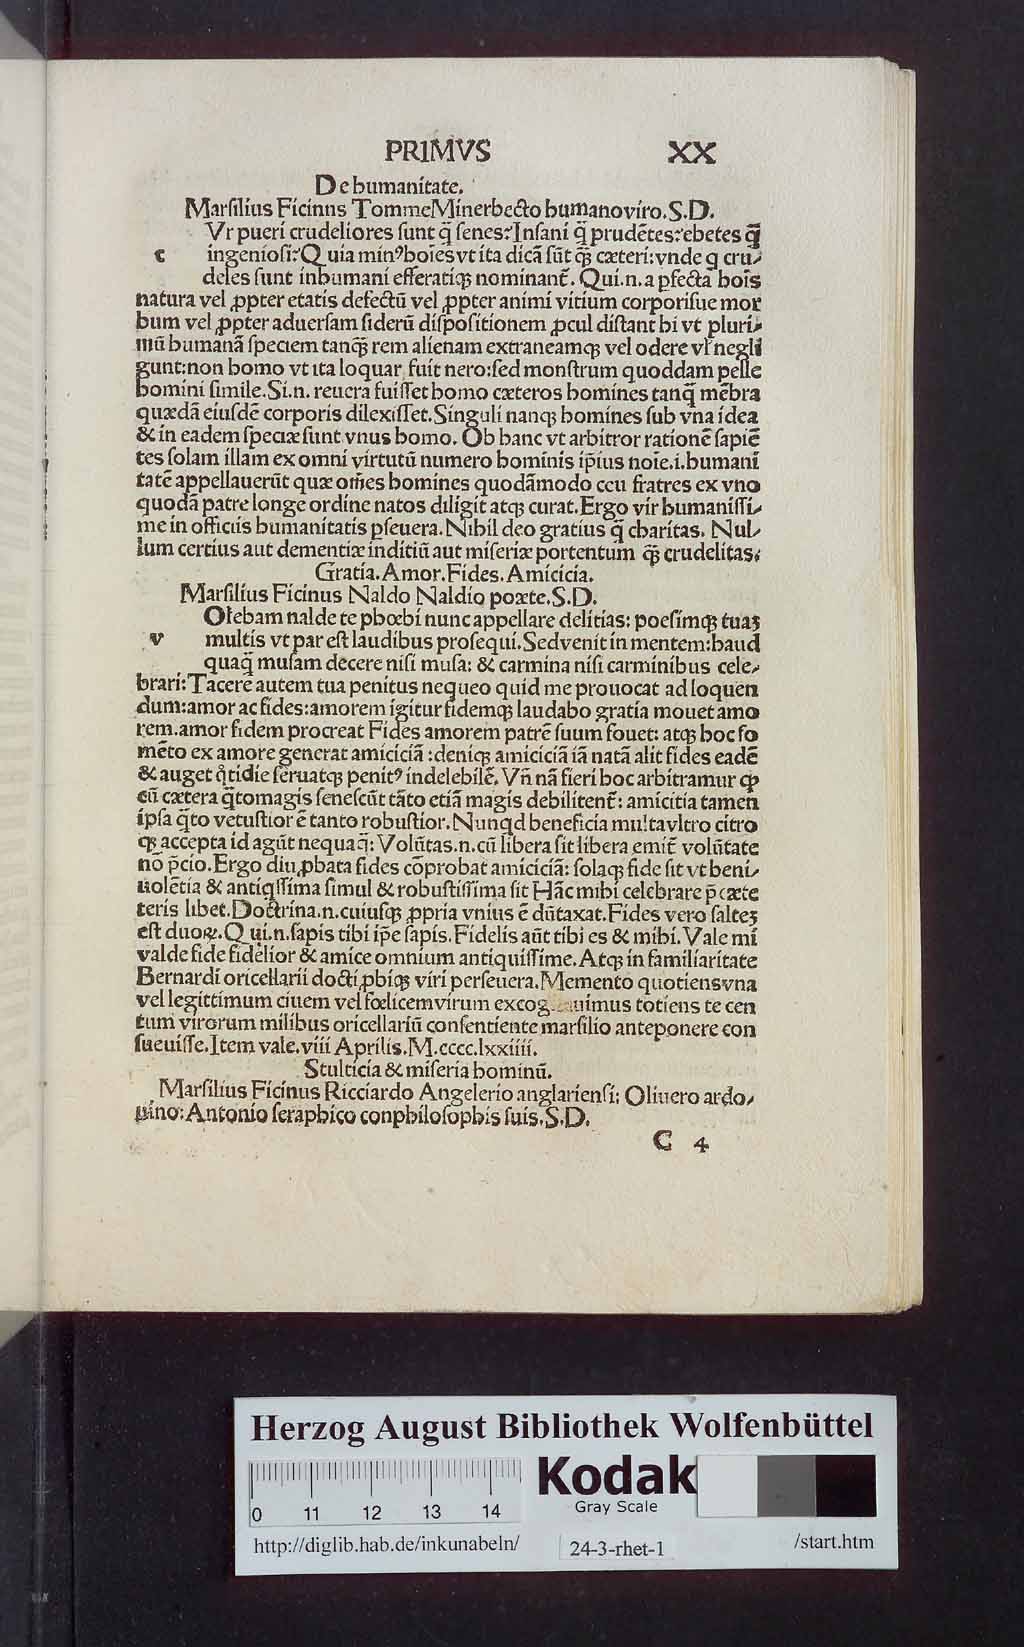 PRIMVS XX
De humanitate.
Marsilius Ficinns Tomme Minerbecto humano viro. S.D.
Vr pueri crudeliores sunt q̃ senes: Insani q̃ prudẽtes: ebetes q̃
c ingeniosi: Quia min⁹ hoi͂es vt ita dicã sũt qꝫ cæteri: vnde q cru-
deles sunt inhumani efferatiqꝫ nominant᷑. Qui.n. a ꝑfecta hoi͂s
natura vel ꝓpter etatis defectũ vel ꝓpter animi vitium corporisue mor
bum vel ꝓpter aduersam siderũ dispositionem ꝓcul distant hi vt pluri-
mũ humanã speciem tanqꝫ rem alienam extraneamqꝫ vel odere vl̓ negli
gunt: non homo vt ita loquar fuit nero: sed monstrum quoddam pelle
homini simile. Si.n. reuera fuisset homo cæteros homines tanq̃ mẽbra
quædã eiusdẽ corporis dilexisset. Singuli nanqꝫ homines sub vna idea
& in eadem speciæ sunt vnus homo. Ob hanc vt arbitror rationẽ sapiẽ
tes solam illam ex omni virtutũ numero hominis ip̃ius noi͂e.i. humani
tatẽ appellauerũt quæ om̃es homines quodãmodo ceu fratres ex vno
quodã patre longe ordine natos diligit atqꝫ curat. Ergo vir humanissi-
me in officiis humanitatis ꝑseuera. Nihil deo gratius q̃ charitas. Nul-
lum certius aut dementiæ inditiũ aut miseriæ portentum qꝫ crudelitas.
Gratia. Amor. Fides. Amicicia.
Marsilius Ficinus Naldo Naldio poæte. S.D.
Olebam nalde te phœbi nunc appellare delitias: poesimqꝫ tuaꝫ
v multis vt par est laudibus prosequi. Sed venit in mentem: haud
quaq̃ musam decere nisi musa: & carmina nisi carminibus cele-
brari: Tacere autem tua penitus nequeo quid me prouocat ad loquen
dum: amor ac fides: amorem igitur fidemqꝫ laudabo gratia mouet amo
rem. amor fidem procreat Fides amorem patrẽ suum fouet: atqꝫ hoc fo
mẽto ex amore generat amiciciã: deniqꝫ amiciciã iã natã alit fides eadẽ
& auget q̊tidie seruatqꝫ penit⁹ indelebilẽ. Vñ nã fieri hoc arbitramur ꝙ
cũ cætera q̃tomagis senescũt tãto etiã magis debilitent᷑: amicitia tamen
ipsa q̃to vetustior ẽ tanto robustior. Nunqd beneficia multa vltro citro
qꝫ accepta id agũt nequaq̃: Volũtas.n. cũ libera sit libera emit᷑ volũtate
nõ p̃cio. Ergo diu ꝓbata fides cõprobat amiciciã: solaqꝫ fide sit vt beni-
uolẽtia & antiqssima simul & robustissima sit Hãc mihi celebrare p̃ cæte
teris libet. Doctrina.n. cuiusqꝫ ꝓpria vnius ẽ dũtaxat. Fides vero salteꝫ
est duoꝝ. Qui.n. sapis tibi ip̃e sapis. Fidelis aũt tibi es & mihi. Vale mi
valde fide fidelior & amice omnium antiquissime. Atqꝫ in familiaritate
Bernardi oricellarii docti ꝓbiqꝫ viri perseuera. Memento quotiens vna
vel legittimum ciuem vel fœlicem virum excog auimus totiens te cen
tum virorum milibus oricellariũ consentiente marsilio anteponere con
sueuisse. Item vale. viii Aprilis. M.cccc.lxxiiii.
Stulticia & miseria hominũ.
Marsilius Ficinus Ricciardo Angelerio anglariensi: Oliuero ardo-
uino: Antonio seraphico conphilosophis suis. S.D.
C 4
Herzog August Bibliothek Wolfenbüttel
Kodak
Gray Scale
0 11 12 13 14
http://diglib.hab.de/inkunabeln/ 24-3-rhet-1 /start.htm